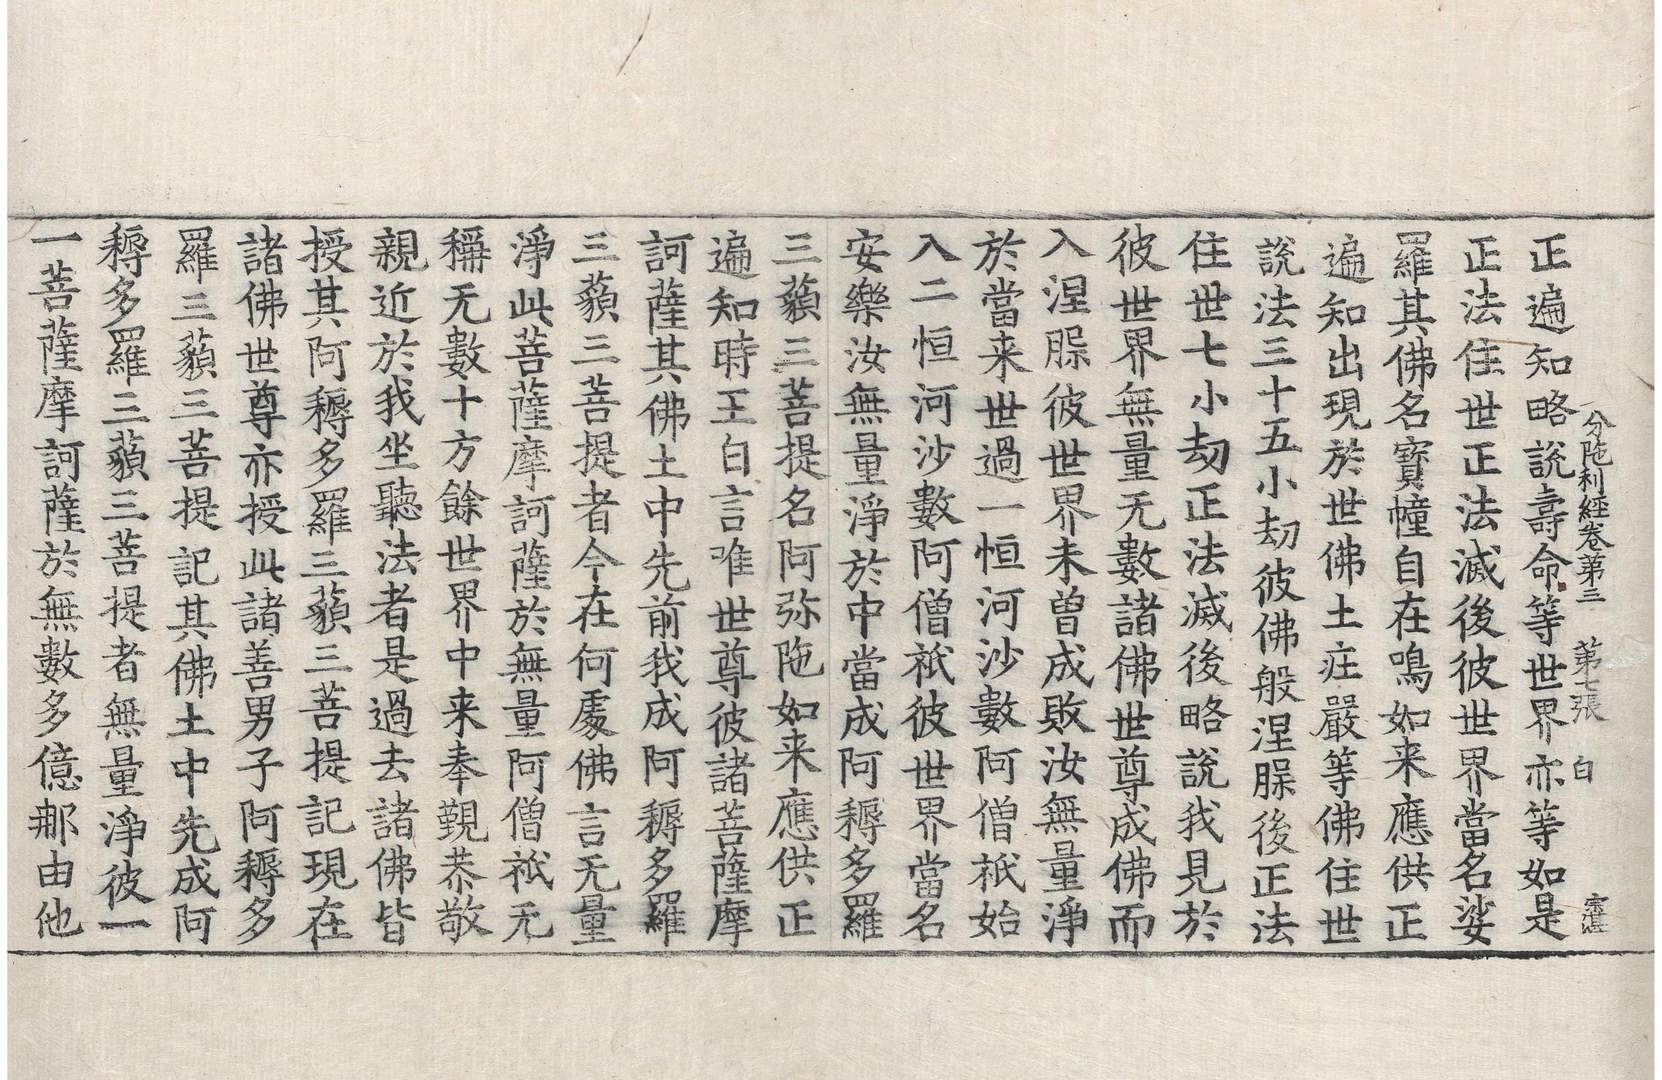 正遍知略說壽命等世界亦等如是
分陁利經卷第三　第七張　白
正法住世正法滅後彼世界當名娑
羅其佛名寶幢自在鳴如来應供正
遍知出現於世佛土庄嚴等佛住世
說法三十五小劫彼佛般涅𦝫後正法
住世七小劫正法滅後略說我見於
彼世界無量无數諸佛世尊成佛而
入涅𦝫彼世界未曾成敗汝無量淨
於當来世過一恒河沙數阿僧祇始
入二恒河沙數阿僧祇彼世界當名
安樂汝無量淨於中當成阿耨多羅
三藐三菩提名阿弥陁如来應供正
遍知時王白言唯世尊彼諸菩薩摩
訶薩其佛土中先前我成阿耨多羅
三藐三菩提者今在何處佛言无量
淨此菩薩摩訶薩於無量阿僧祇无
稱无數十方餘世界中来奉覲恭敬
親近於我坐聽法者是過去諸佛皆
授其阿耨多羅三藐三菩提記現在
諸佛世尊亦授此諸善男子阿耨多
羅三藐三菩提記其佛土中先成阿
耨多羅三藐三菩提者無量淨彼一
一菩薩摩訶薩於無數多億那由他